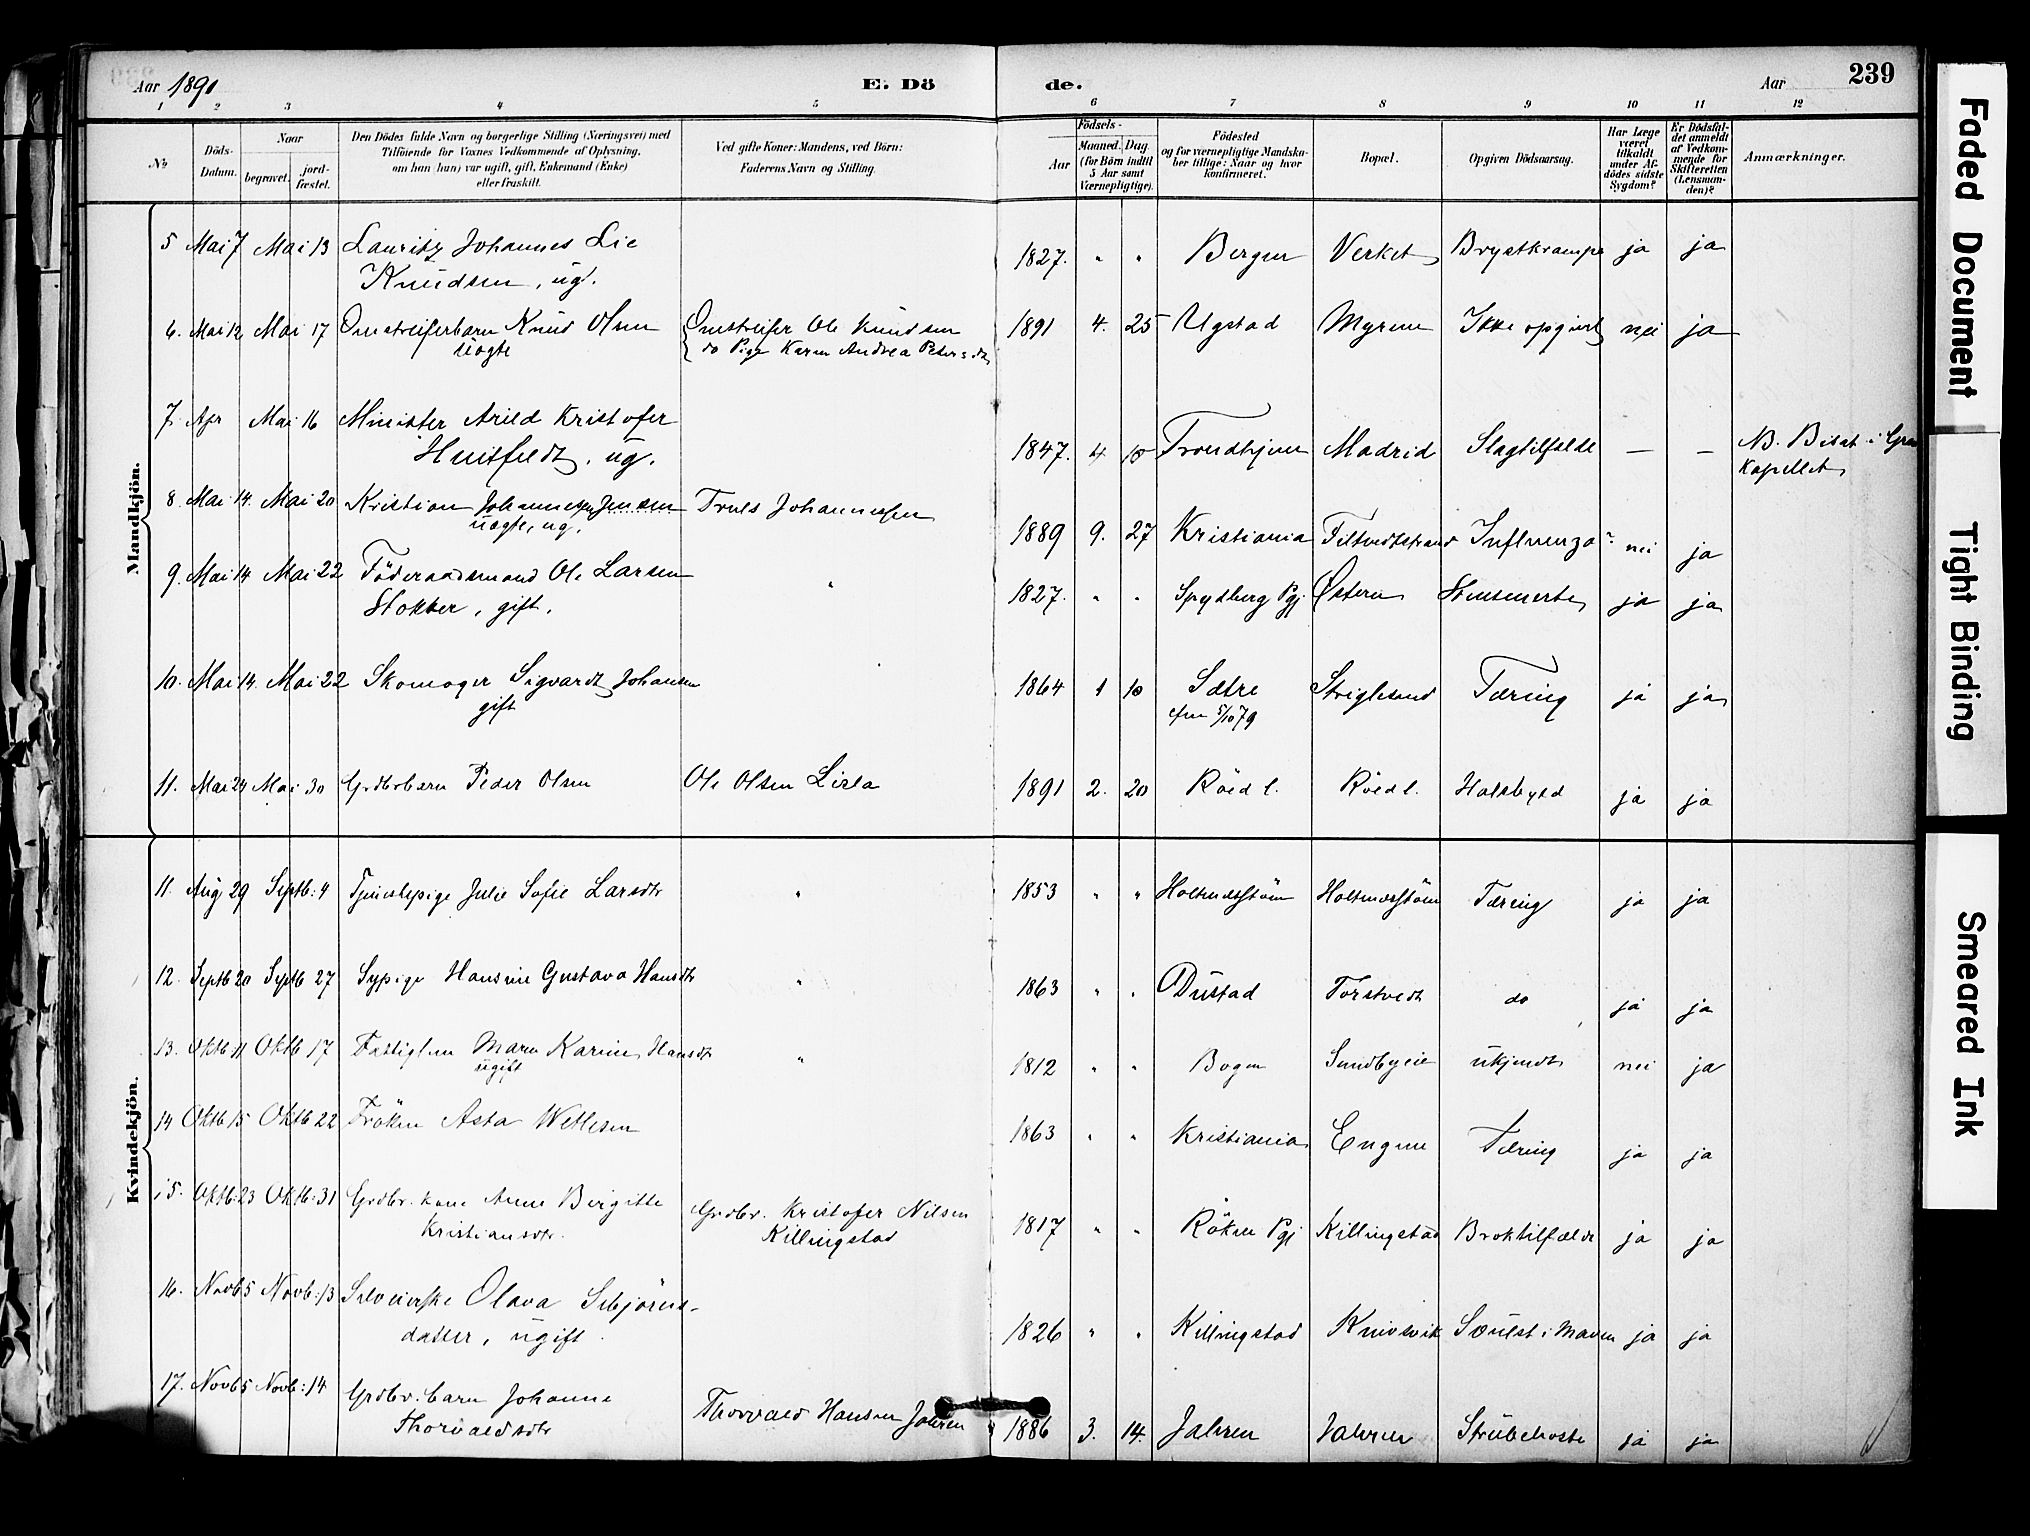 Aar 1891 E. Döde. Aar 239
1 2 3 4 5 6 7 8 9 10 11 12
№ Döds-Datum. Naar begravet. jordfæstet. Den Dödes fulde Navn og borgerlige Stilling (Næringsvei) med Tilföiende for Voxnes Vedkommende af Oplysning, om han (hun) var ugift, gift, Enkemand (Enke) eller fraskilt. Ved gifte Koner: Mandens, ved Börn: Faderens Navn og Stilling. Födsels- Aar Maaned. Dag. (for Börn indtil 5 Aar samt Værnepligtige). Födested og for værnepligtige Mandskaber tillige: Naar og hvor konfirmeret. Bopæl. Opgiven Dödsaarsag. Har Læge været tilkaldt under Afdödes sidste Sygdom? Er Dödsfaldet anmeldt af Vedkommende for Skifteretten (Lensmanden)? Anmærkninger.
Mandkjön.
5 Mai 7 Mai 13 Lauritz Johannes Lie
Knudsen, ug. 1827. " " Bergen Verket Brystkrampe ja ja
6. Mai 12 Mai 17 Omstreiferbarn Knud Olsen Omstreifer Ole Knudsen 1891 4. 25 Ugstad Myrene Ikke opgivet nei ja
uægte do Pige Karen Andrea Petersdt
7. Apr Mai 16 Minister Arild Kristofer
Huitfeldt, ug. 1847. 4 10 Trondhjem Madrid Slagtilfælde — — NB. Bisat i Grav
Kapellet
8. Mai 14. Mai 20 Kristian Johannesen Jensen Truls Johannessen
uægte, ug. 1889 9. 27 Kristiania Filtvedtstrand Influenza? nei ja
9. Mai 14 Mai 22 Föderaadsmand Ole Larsen "
Stokker, gift. 1827. " " Spydberg Pgj Østern ja ja
10. Mai 14. Mai 22 Skomager Sigvardt Johansen 1864 1 10 Sætre Striglesund Tæring ja ja
gift cfm 5/10 79
11. Mai 24 Mai 30 Grdbrbarn Peder Olsen Ole Olsen 1891 2. 20 Röed l. Röed l. Halsbyld ja ja
Kvindekjön.
11. Aug 29 Septb: 4 Tjenestepige Julie Sofie Larsdtr " 1853 " " Holtnæsstöen Holtnæsstöen Tæring ja ja
12. Septb 20 Septb 27 Sypige Hansine Gustava Hansdtr " 1863 " " Dustad Torstvedt do ja ja
13. Oktb 11 Oktb 17 Fattiglem Maren Karine Hansdtr " 1812 " " Bogen Sundbyeie ukjendt nei ja
ugift
14 Oktb 15 Oktb 22 Fröken Asta Wetlesen 1863 " " Kristiania Engene Tæring ja ja
15. Oktb: 23 Oktb: 31 Grdbr. kone Anne Birgitte Grdbr. Kristofer Nilsen
Kristiansdtr. Killingstad 1817 " " Röken Pgj Killingstad Broktilfælde ja ja
16. Novb 5 Novb: 13 Selveierske Olava Sebjörns-
datter, ugift. 1826 " " Killingstad Knivsvik Svulst i Maven ja ja
17. Novb 5 Novb: 14 Grdbr. barn Johanne Thorvald Hansen Jahren
Thorvaldsdtr 1886 3. 14. Jahren Jahren Strubehoste ja ja
Faded Document
Tight Binding
Smeared Ink